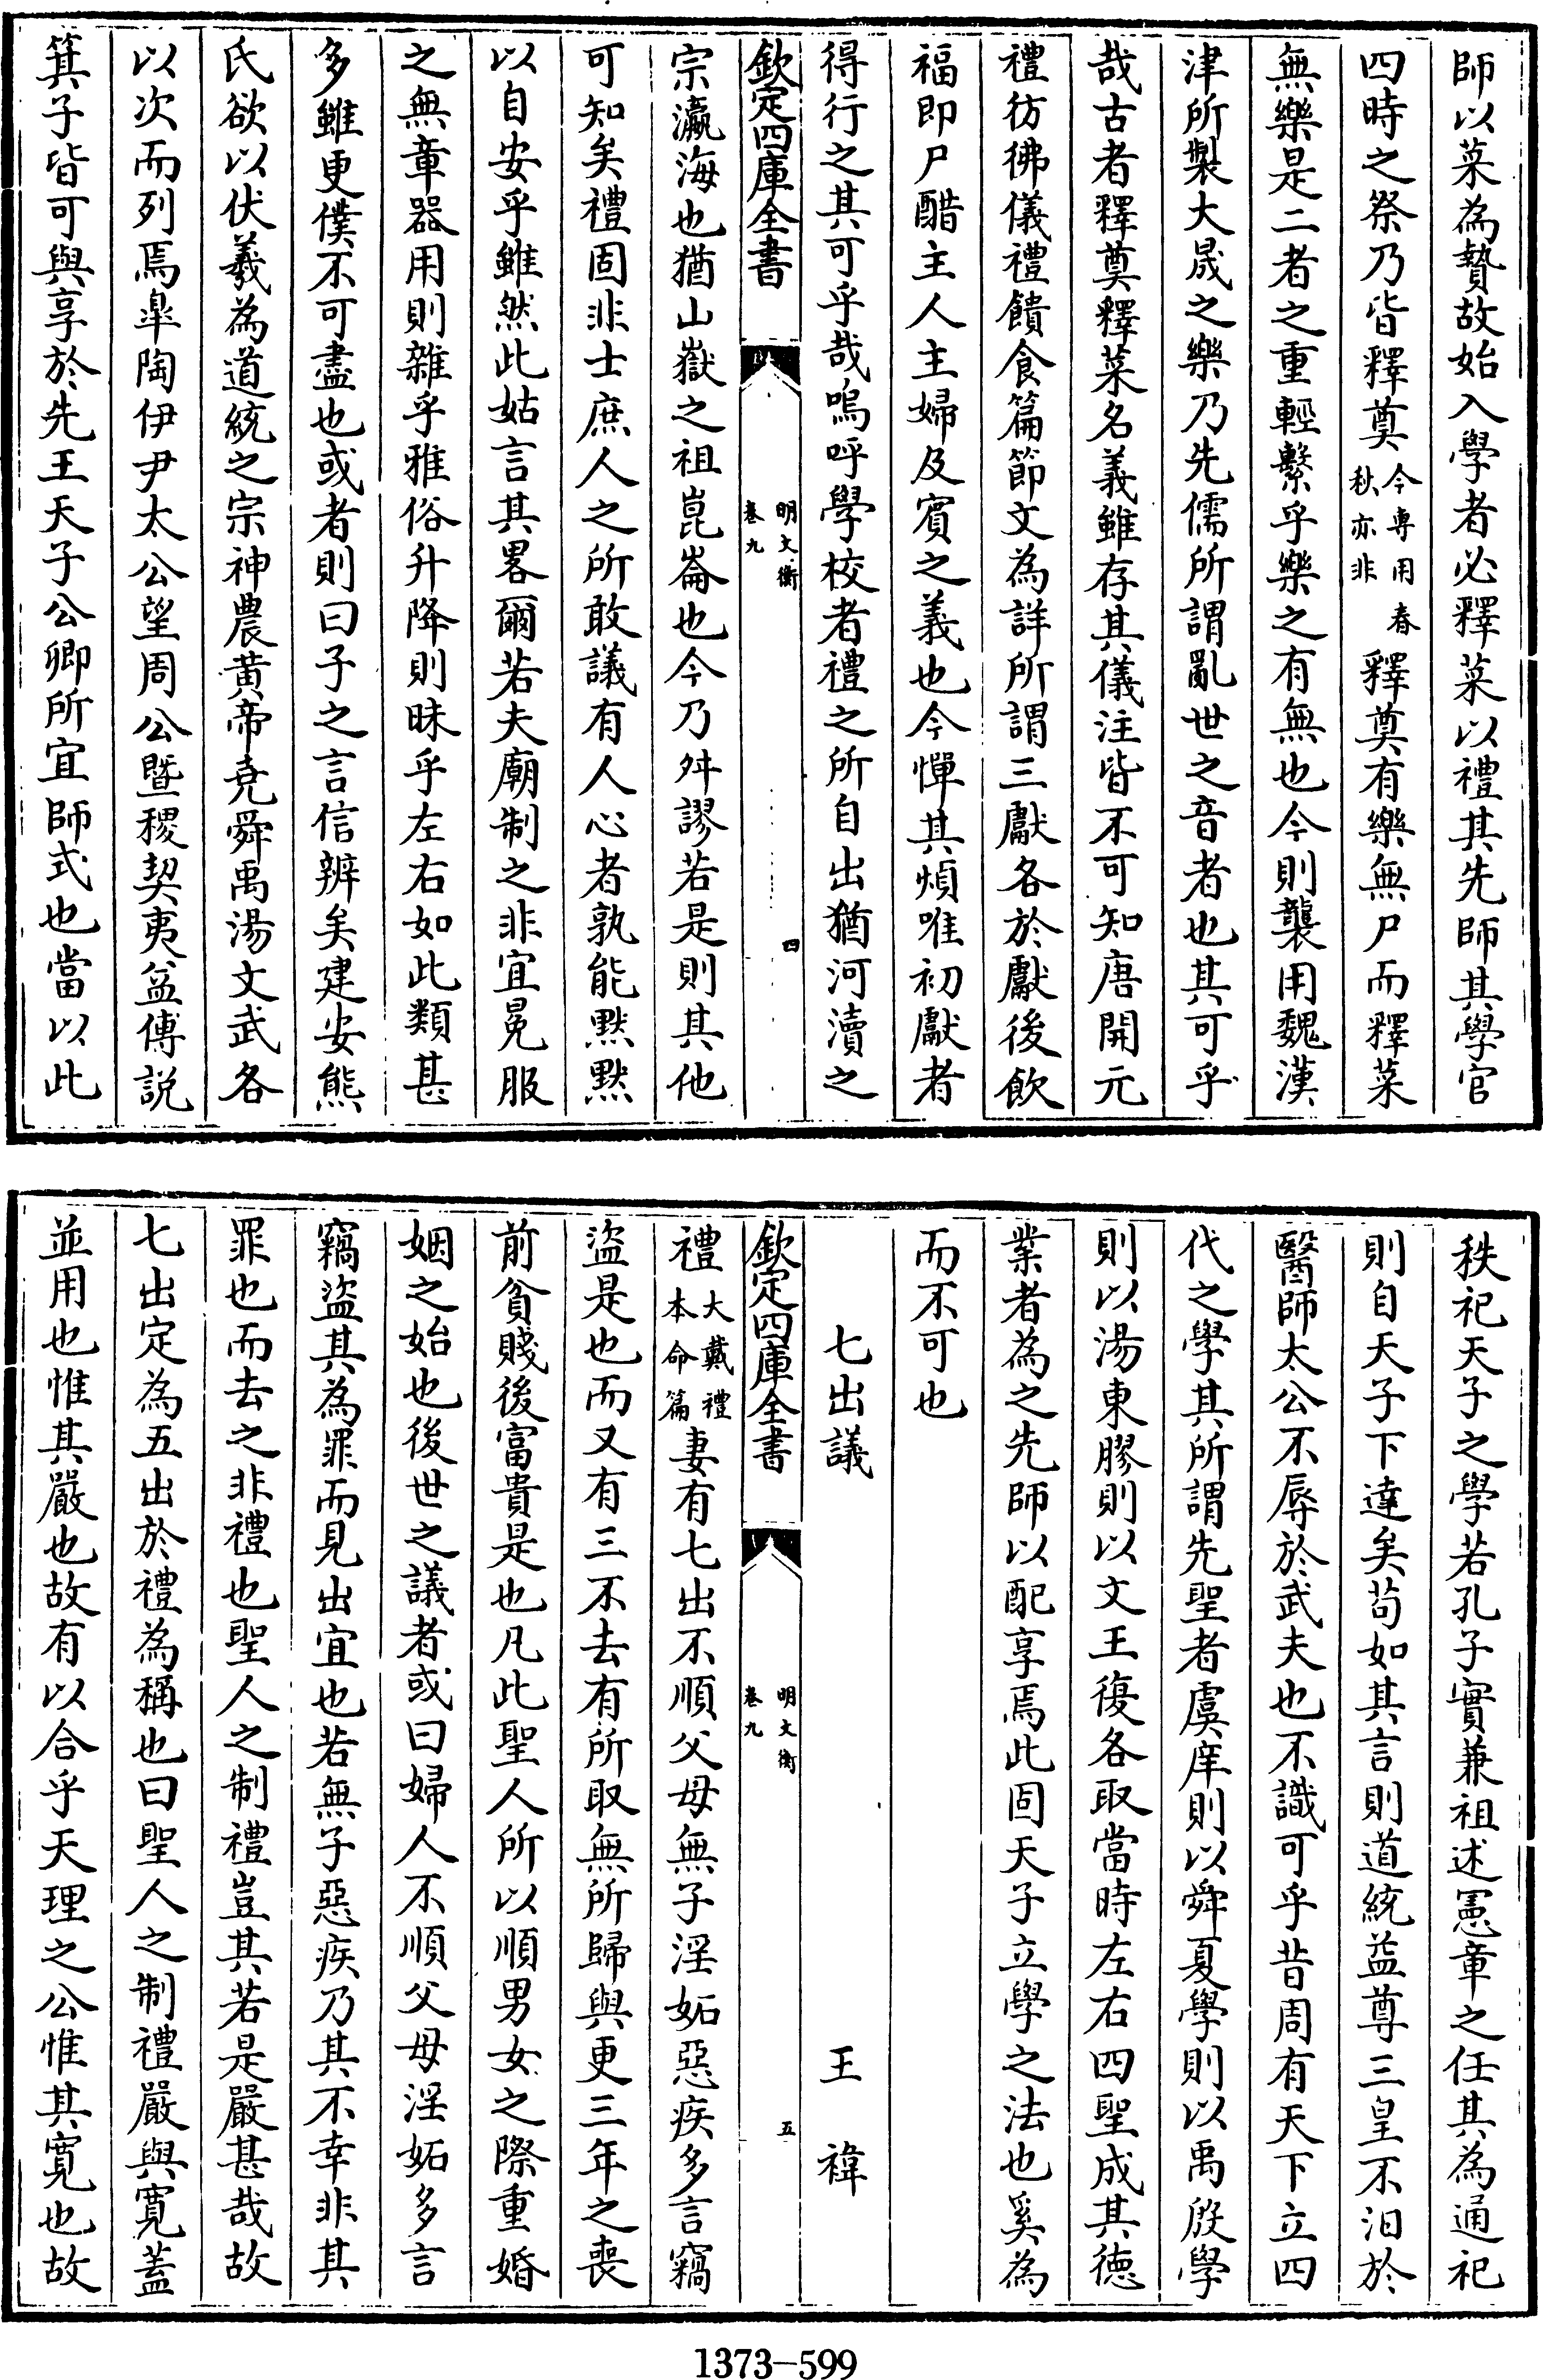 師以菜為贄故始入學者必釋菜以禮其先師其學官
四時之祭乃皆釋奠今専用春秋亦非釋奠有樂無尸而釋菜
無樂是二者之重輕繫乎樂之有無也今則襲用魏漢
津所製大晟之樂乃先儒所謂亂世之音者也其可乎
哉古者釋奠釋菜名義雖存其儀注皆不可知唐開元
禮彷彿儀禮饋食篇節文為詳所謂三獻各於獻後飲
福即尸醋主人主婦及賓之義也今憚其煩唯初獻者
得行之其可乎哉嗚呼學校者禮之所自出猶河瀆之
欽定四庫全書
明文衡
卷九
四
宗瀛海也猶山嶽之祖崑崙也今乃舛謬若是則其他
可知矣禮固非士庶人之所敢議有人心者孰能黙黙
以自安乎雖然此姑言其畧爾若夫廟制之非宜冕服
之無章器用則雜乎雅俗升降則昧乎左右如此類甚
多雖更僕不可盡也或者則曰子之言信辨矣建安熊
氏欲以伏羲為道統之宗神農黄帝堯舜禹湯文武各
以次而列焉臯陶伊尹太公望周公暨稷契夷益傅説
箕子皆可與享於先王天子公卿所宜師式也當以此
秩祀天子之學若孔子實兼祖述憲章之任其為通祀
則自天子下達矣苟如其言則道統益尊三皇不汨於
醫師太公不辱於武夫也不識可乎昔周有天下立四
代之學其所謂先聖者虞庠則以舜夏學則以禹殷學
則以湯東膠則以文王復各取當時左右四聖成其德
業者為之先師以配享焉此固天子立學之法也奚為
而不可也
七出議 王禕
欽定四庫全書
明文衡
卷九
五
禮大戴禮本命篇妻有七出不順父母無子淫妬惡疾多言竊
盜是也而又有三不去有所取無所歸與更三年之喪
前貧賤後富貴是也凡此聖人所以順男女之際重婚
姻之始也後世之議者或曰婦人不順父母淫妬多言
竊盜其為罪而見出宜也若無子惡疾乃其不幸非其
罪也而去之非禮也聖人之制禮豈其若是嚴甚哉故
七出定為五出於禮為稱也曰聖人之制禮嚴與寛蓋
並用也惟其嚴也故有以合乎天理之公惟其寛也故
1373—599